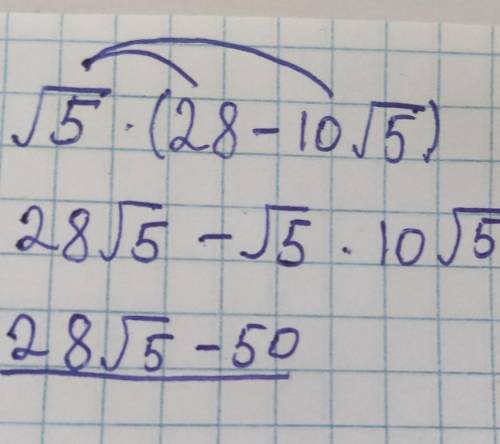 √5 · (28 - 10√5)
28√5 - √5 · 10√5
28√5 - 50